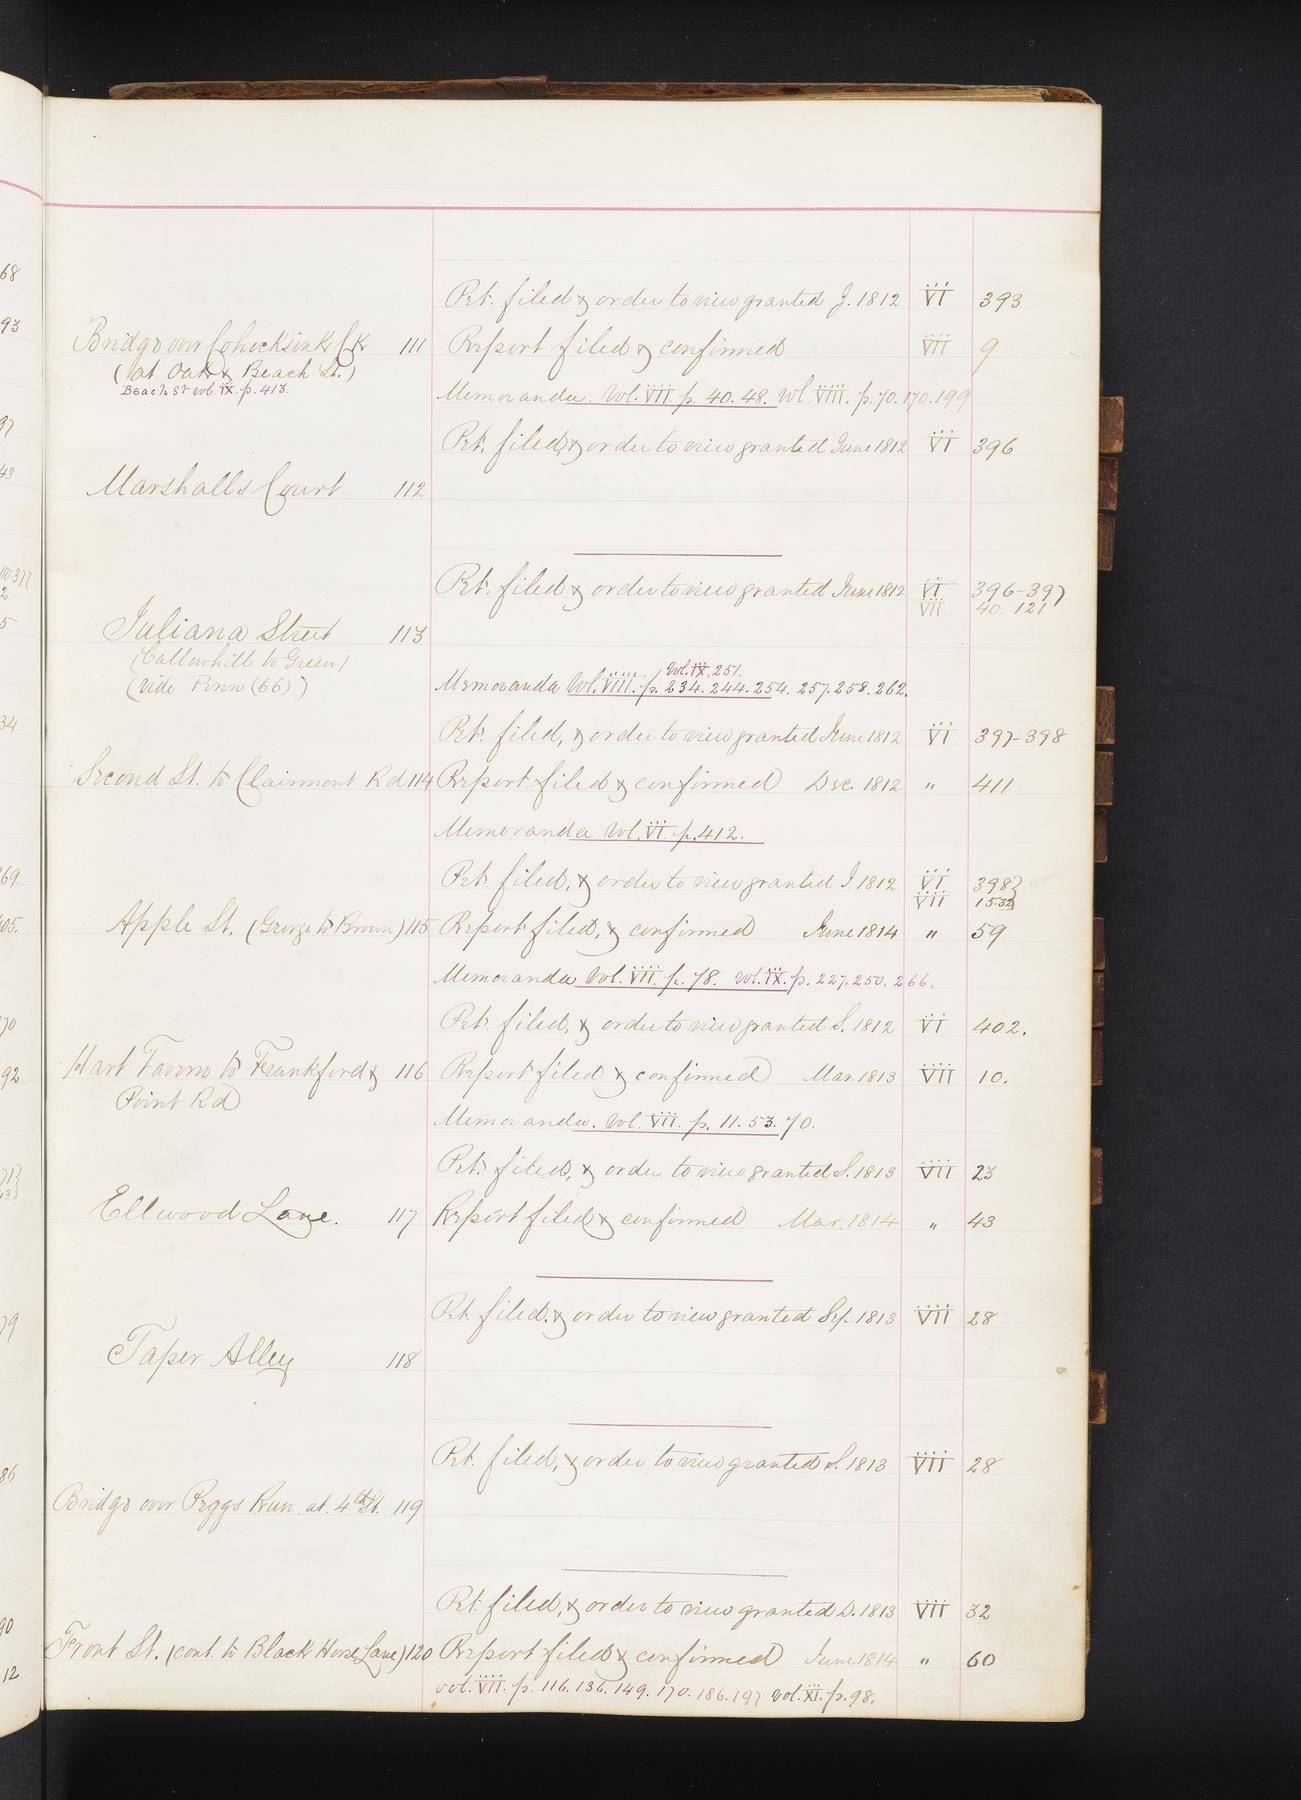 Pet. filed & order to view granted J. 1812 VI 393
Bridge over Cohocksink Ck 111 Report filed & confirmed VII 9
(at Oak & Beach St.)
Beach St vol. IX. p. 413.
Memoranda. Vol. VII p. 40. 48. Vol. VIII. p. 70. 170. 199
Pet. filed, & order to view granted June 1812 VI 396
Marshalls Court 112
Pet. filed & order to view granted June 1812 VI 396-397
VII 40. 121
Juliana Street 113
(Callowhill to Green)
(vide Penn (66))
Vol. IX, 251.
Memoranda Vol. VIII. p. 234. 244. 254. 257. 258. 262.
Pet. filed, & order to view granted June 1812 VI 397-398
Second St. to Clairmont Rd 114 Report filed & confirmed Dec. 1812 " 411
Memoranda Vol. VI p. 412.
Pet. filed, & order to view granted J. 1812 VI 398}
VII 15.32}
Apple St. (George to Brown) 115 Report filed, & confirmed June 1814 " 59
Memoranda Vol. VII p. 78. Vol. IX. p. 227. 250. 266.
Pet. filed, & order to view granted S. 1812 VI 402.
Hart Tavern to Frankford & 116 Report filed & confirmed Mar. 1813 VII 10.
Point Rd
Memoranda. Vol. VII. p. 11. 53. 70.
Pet. filed, & order to view granted S. 1813 VII 23
Ellwood Lane. 117 Report filed & confirmed Mar. 1814 " 43
Pet. filed. & order to view granted Sep. 1813 VII 28
Taper Alley 118
Pet. filed, & order to view granted S. 1813 VII 28
Bridge over Peggs Run at 4th St. 119
Pet. filed, & order to view granted D. 1813 VII 32
Front St. (cont. to Black Horse Lane) 120 Report filed & confirmed June 1814 " 60
vol. VII. p. 116. 136. 149. 170. 186. 197 vol. XI. p. 98.